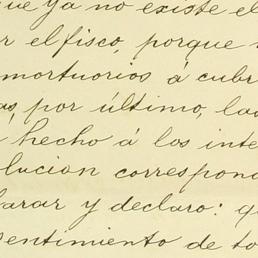 que ya no existe el
r el fisco, porque
mortuorios á cubr
as, por último, las
hecho á los inte
lucion correspond
arar y declaro: q
sentimiento de to